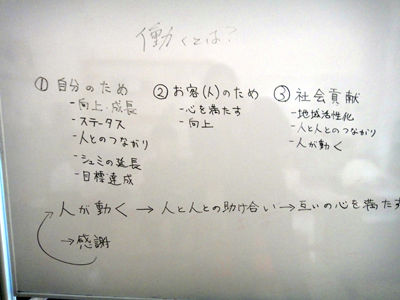 働くとは?
① 自分のため
- 向上・成長
- ステータス
- 人とのつながり
- シュミの延長
- 目標達成
② お客(人)のため
- 心を満たす
- 向上
③ 社会貢献
- 地域活性化
- 人と人とのつながり
- 人が動く
人が動く → 人と人との助け合い → 互いの心を満たす
→ 感謝